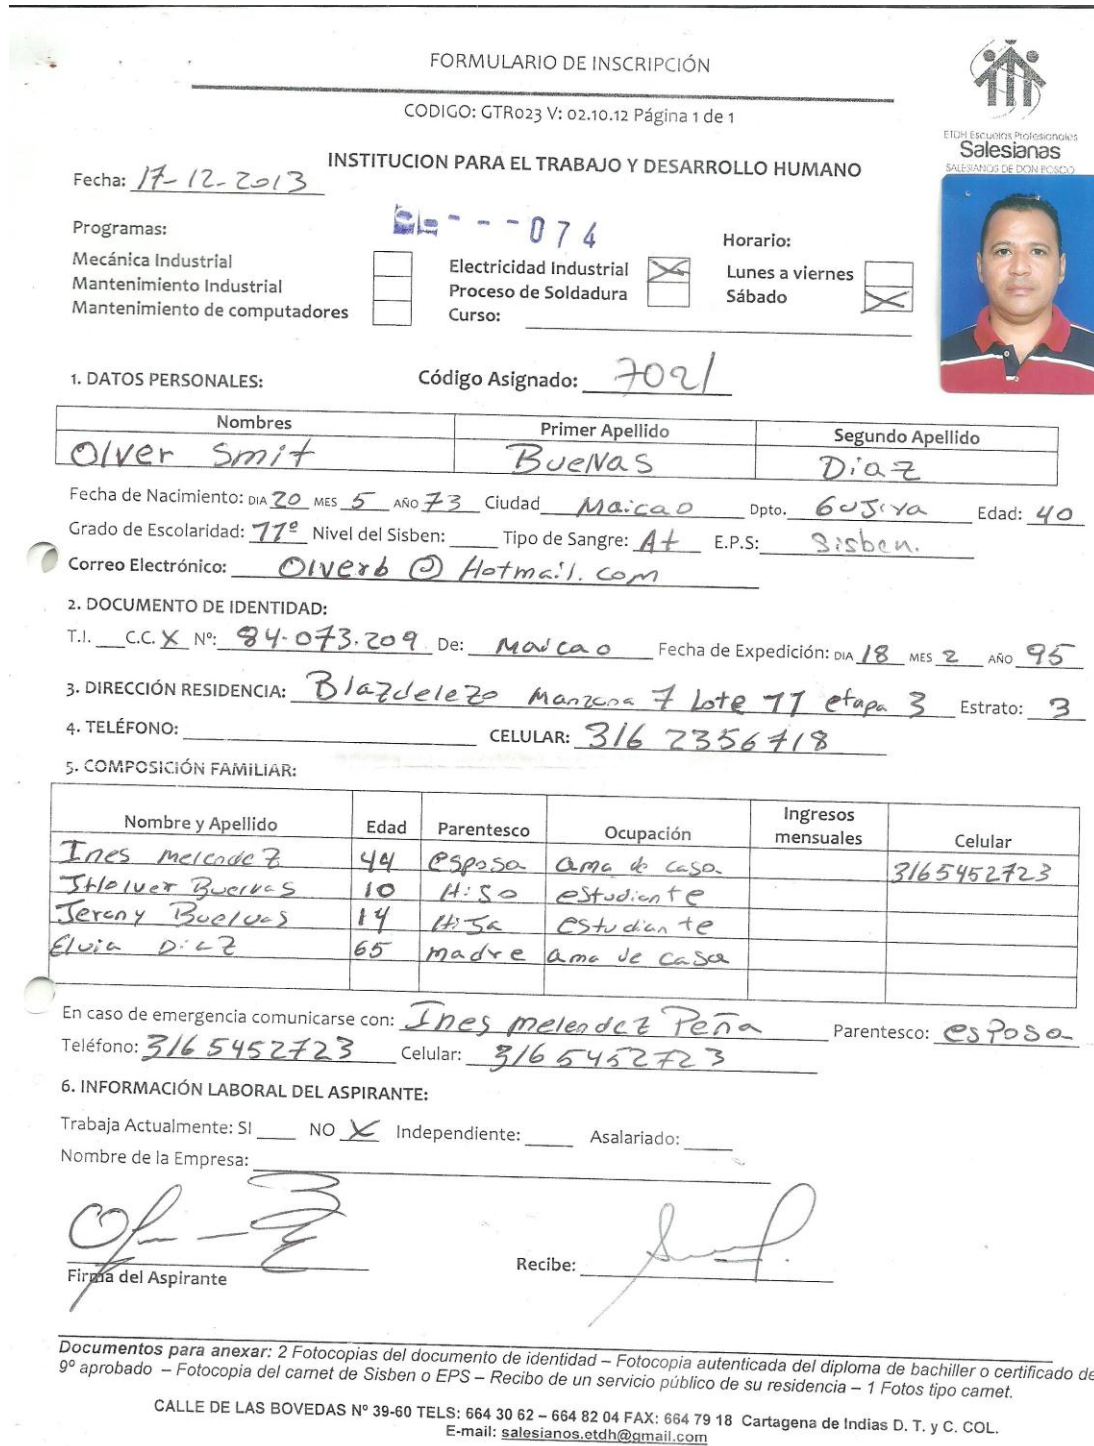 FORMULARIO DE INSCRIPCIÓN
CODIGO: GTR023 V: 02.10.12 Página 1 de 1
ETDH Escuelas Profesionales
Salesianas
SALESIANOS DE DON BOSCO
INSTITUCION PARA EL TRABAJO Y DESARROLLO HUMANO
Fecha: 17-12-2013
074
Programas: Horario:
Mecánica Industrial Electricidad Industrial X Lunes a viernes
Mantenimiento Industrial Proceso de Soldadura Sábado X
Mantenimiento de computadores Curso:
1. DATOS PERSONALES: Código Asignado: 7021
Nombres Primer Apellido Segundo Apellido
Olver Smit BueNas Diaz
Fecha de Nacimiento: DIA 20 MES 5 AÑO 73 Ciudad Maicao Dpto. GuJira Edad: 40
Grado de Escolaridad: 11º Nivel del Sisben: Tipo de Sangre: A+ E.P.S: Sisben.
Correo Electrónico: Olverb @ Hotmail.com
2. DOCUMENTO DE IDENTIDAD:
T.I. C.C. X Nº: 84.073.209 De: Maicao Fecha de Expedición: DIA 18 MES 2 AÑO 95
3. DIRECCIÓN RESIDENCIA: Blazdelezo Manzana 7 Lote 11 etapa 3 Estrato: 3
4. TELÉFONO: CELULAR: 316 2356718
5. COMPOSICIÓN FAMILIAR:
Nombre y Apellido Edad Parentesco Ocupación Ingresos mensuales Celular
Ines melendez 44 esposa ama de casa 3165452723
JHolver Buelvas 10 HiJo estudiante
Jerany Buelvas 14 HiJa estudiante
Elvia Diaz 65 madre ama de casa
En caso de emergencia comunicarse con: Ines melendez Peña Parentesco: esposa
Teléfono: 3165452723 Celular: 3165452723
6. INFORMACIÓN LABORAL DEL ASPIRANTE:
Trabaja Actualmente: SI NO X Independiente: Asalariado:
Nombre de la Empresa:
Recibe:
Firma del Aspirante
Documentos para anexar: 2 Fotocopias del documento de identidad – Fotocopia autenticada del diploma de bachiller o certificado de
9º aprobado – Fotocopia del carnet de Sisben o EPS – Recibo de un servicio público de su residencia – 1 Fotos tipo carnet.
CALLE DE LAS BOVEDAS Nº 39-60 TELS: 664 30 62 – 664 82 04 FAX: 664 79 18 Cartagena de Indias D. T. y C. COL.
E-mail: salesianos.etdh@gmail.com